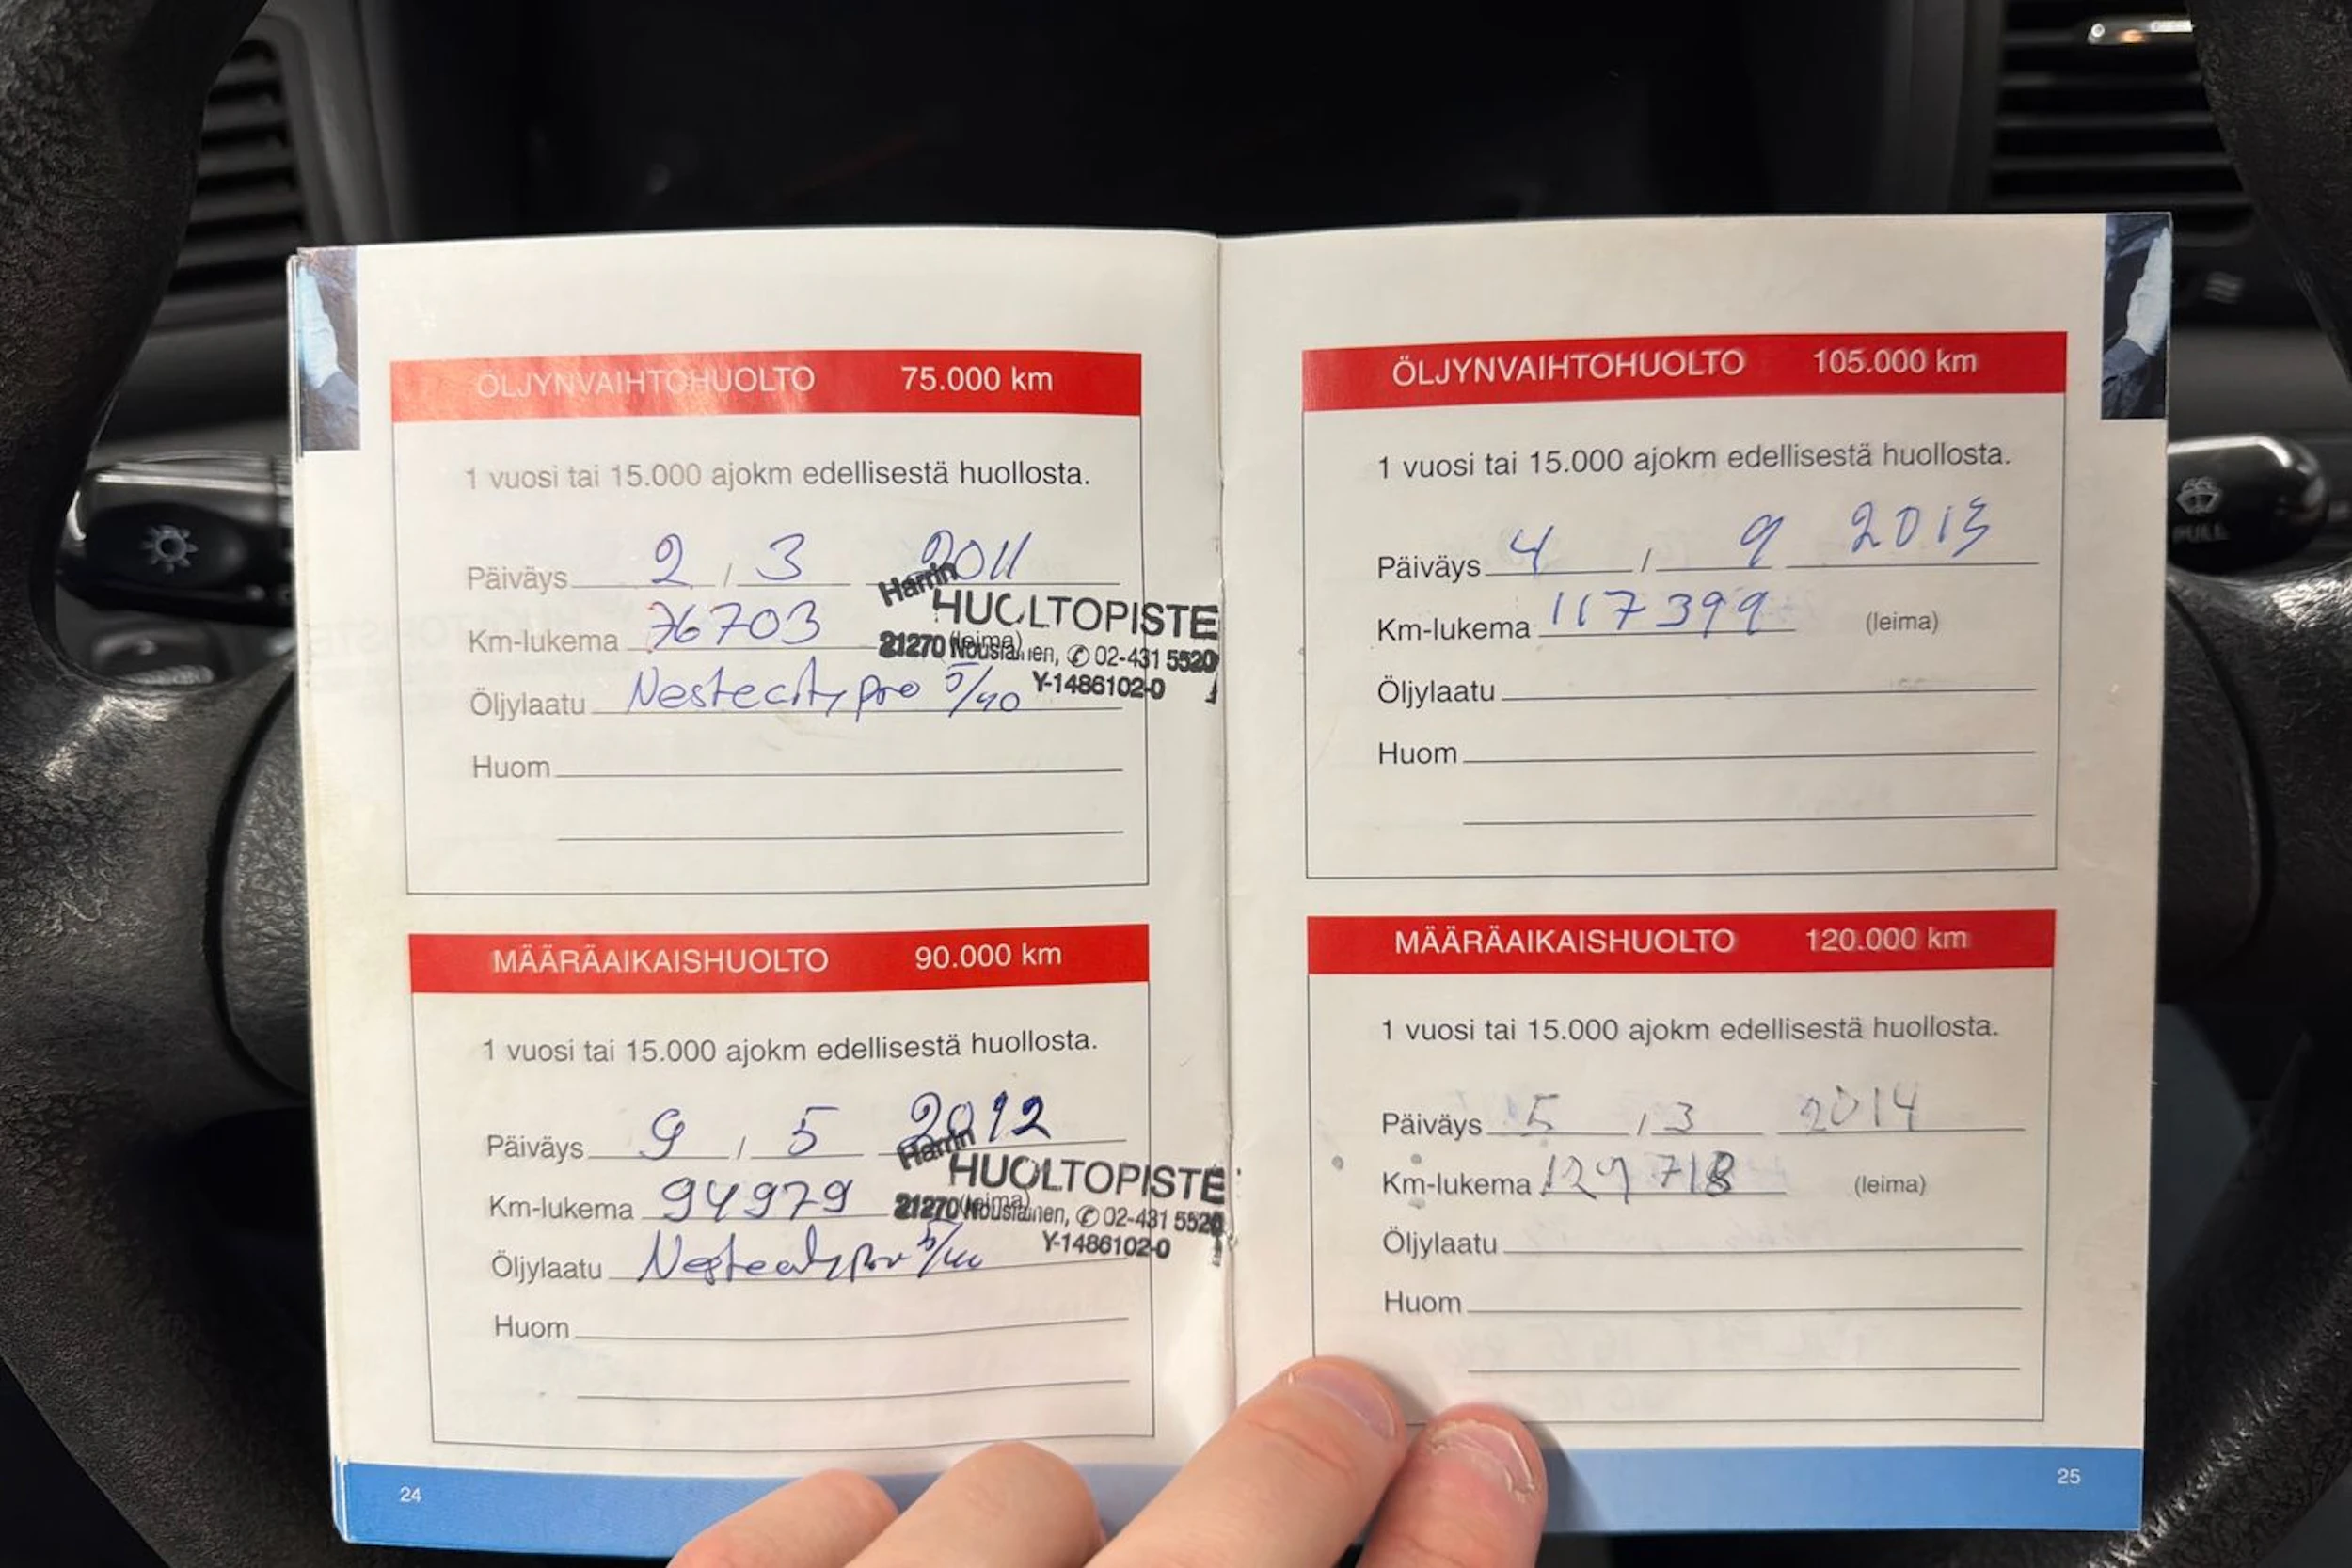 ÖLJYNVAIHTOHUOLTO 75.000 km
1 vuosi tai 15.000 ajokm edellisestä huollosta.
Päiväys 2 / 3 2011
Harrin
HUOLTOPISTE
Km-lukema 76703 (leima)
21270 Nousiainen, ✆ 02-431 5520
Y-1486102-0
Öljylaatu Nestecity pro 5/40
Huom
MÄÄRÄAIKAISHUOLTO 90.000 km
1 vuosi tai 15.000 ajokm edellisestä huollosta.
Päiväys 9 / 5 2012
Harrin
HUOLTOPISTE
Km-lukema 94979 (leima)
21270 Nousiainen, ✆ 02-431 5520
Y-1486102-0
Öljylaatu Nestecity pro 5/40
Huom
24
ÖLJYNVAIHTOHUOLTO 105.000 km
1 vuosi tai 15.000 ajokm edellisestä huollosta.
Päiväys 4 / 9 2013
Km-lukema 117399 (leima)
Öljylaatu
Huom
MÄÄRÄAIKAISHUOLTO 120.000 km
1 vuosi tai 15.000 ajokm edellisestä huollosta.
Päiväys 5 / 3 2014
Km-lukema 129718 (leima)
Öljylaatu
Huom
25
PULL